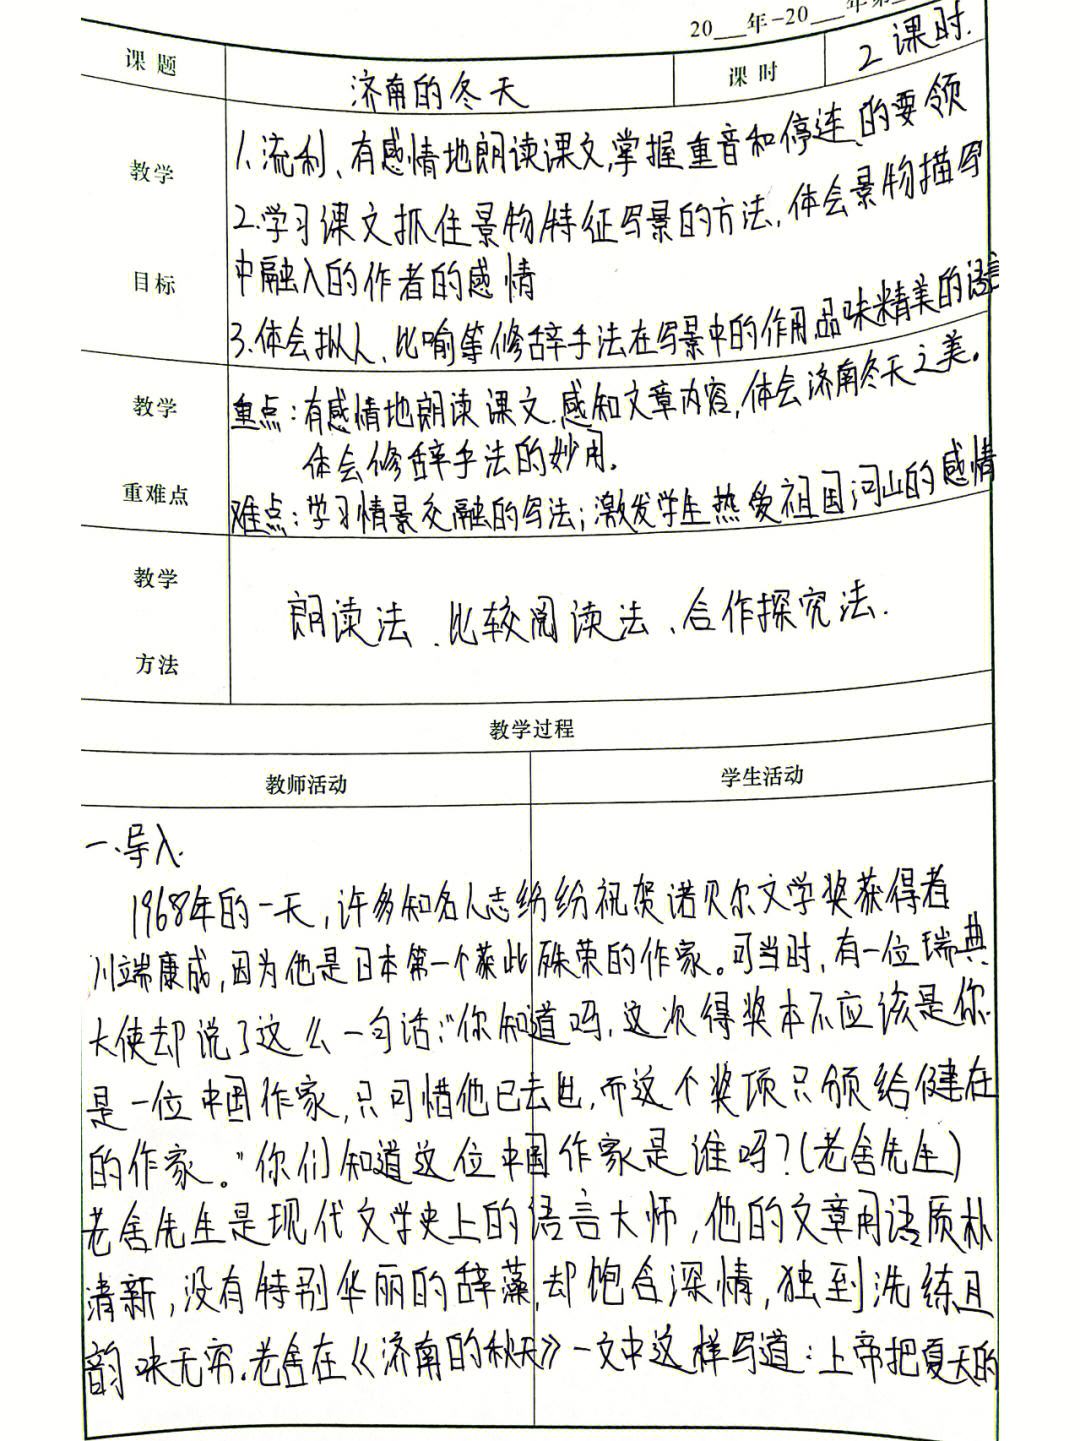 20___年-20___年第
课题
济南的冬天
课时
2课时.
教学
目标
1.流利、有感情地朗读课文,掌握重音和停连的要领
2.学习课文抓住景物特征写景的方法,体会景物描写
中融入的作者的感情
3.体会拟人、比喻等修辞手法在写景中的作用,品味精美的语言
教学
重难点
重点:有感情地朗读课文.感知文章内容,体会济南冬天之美。
体会修辞手法的妙用.
难点:学习情景交融的写法;激发学生热爱祖国河山的感情
教学
方法
朗读法、比较阅读法、合作探究法.
教学过程
教师活动
学生活动
一.导入.
1968年的一天,许多知名人志纷纷祝贺诺贝尔文学奖获得者
川端康成,因为他是日本第一个获此殊荣的作家。可当时,有一位瑞典
大使却说了这么一句话:“你知道吗,这次得奖本不应该是你.
是一位中国作家,只可惜他已去世,而这个奖项只颁给健在
的作家。”你们知道这位中国作家是谁吗?(老舍先生)
老舍先生是现代文学史上的语言大师,他的文章用语质朴
清新,没有特别华丽的辞藻,却饱含深情,独到洗练且
韵味无穷.老舍在《济南的秋天》一文中这样写道:上帝把夏天的